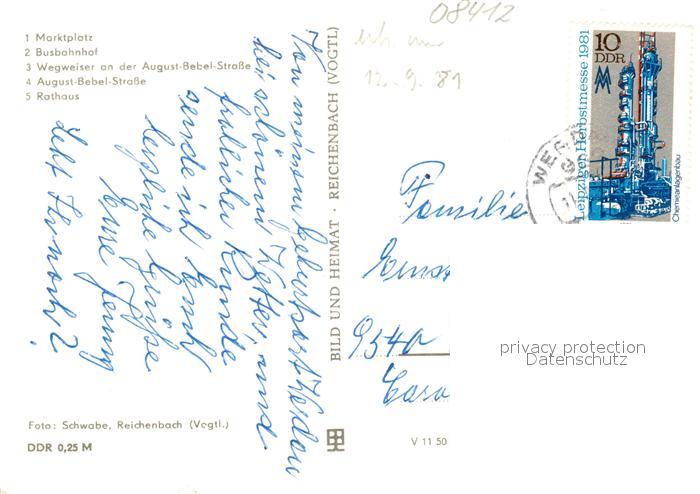 08412
1 Marktplatz
2 Busbahnhof
3 Wegweiser an der August-Bebel-Straße
4 August-Bebel-Straße
5 Rathaus
Von meinem Geburtsort Werdau
bei schönem Wetter und
fröhlicher Runde
sende ich Euch
herzliche Grüße
Eure Jenny
BILD UND HEIMAT · REICHENBACH (VOGTL)
12.9.81
Leipziger Herbstmesse 1981
10
DDR
MM
Chemieanlagenbau
WER
Familie
9340
privacy protection
Datenschutz
Foto: Schwabe, Reichenbach (Vogtl.)
DDR 0,25 M
V 11 50